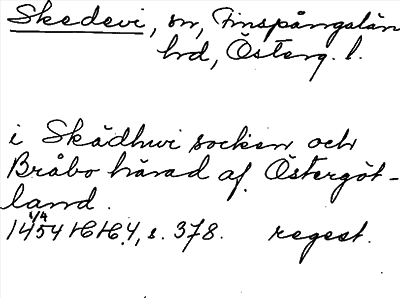 Skedevi, sn, Finspångalän
hrd, Österg. l.
i Skädhwi socken och
Bråbo härad af Östergöt-
land.
1/4
1454 HH 4, s. 378. regest.